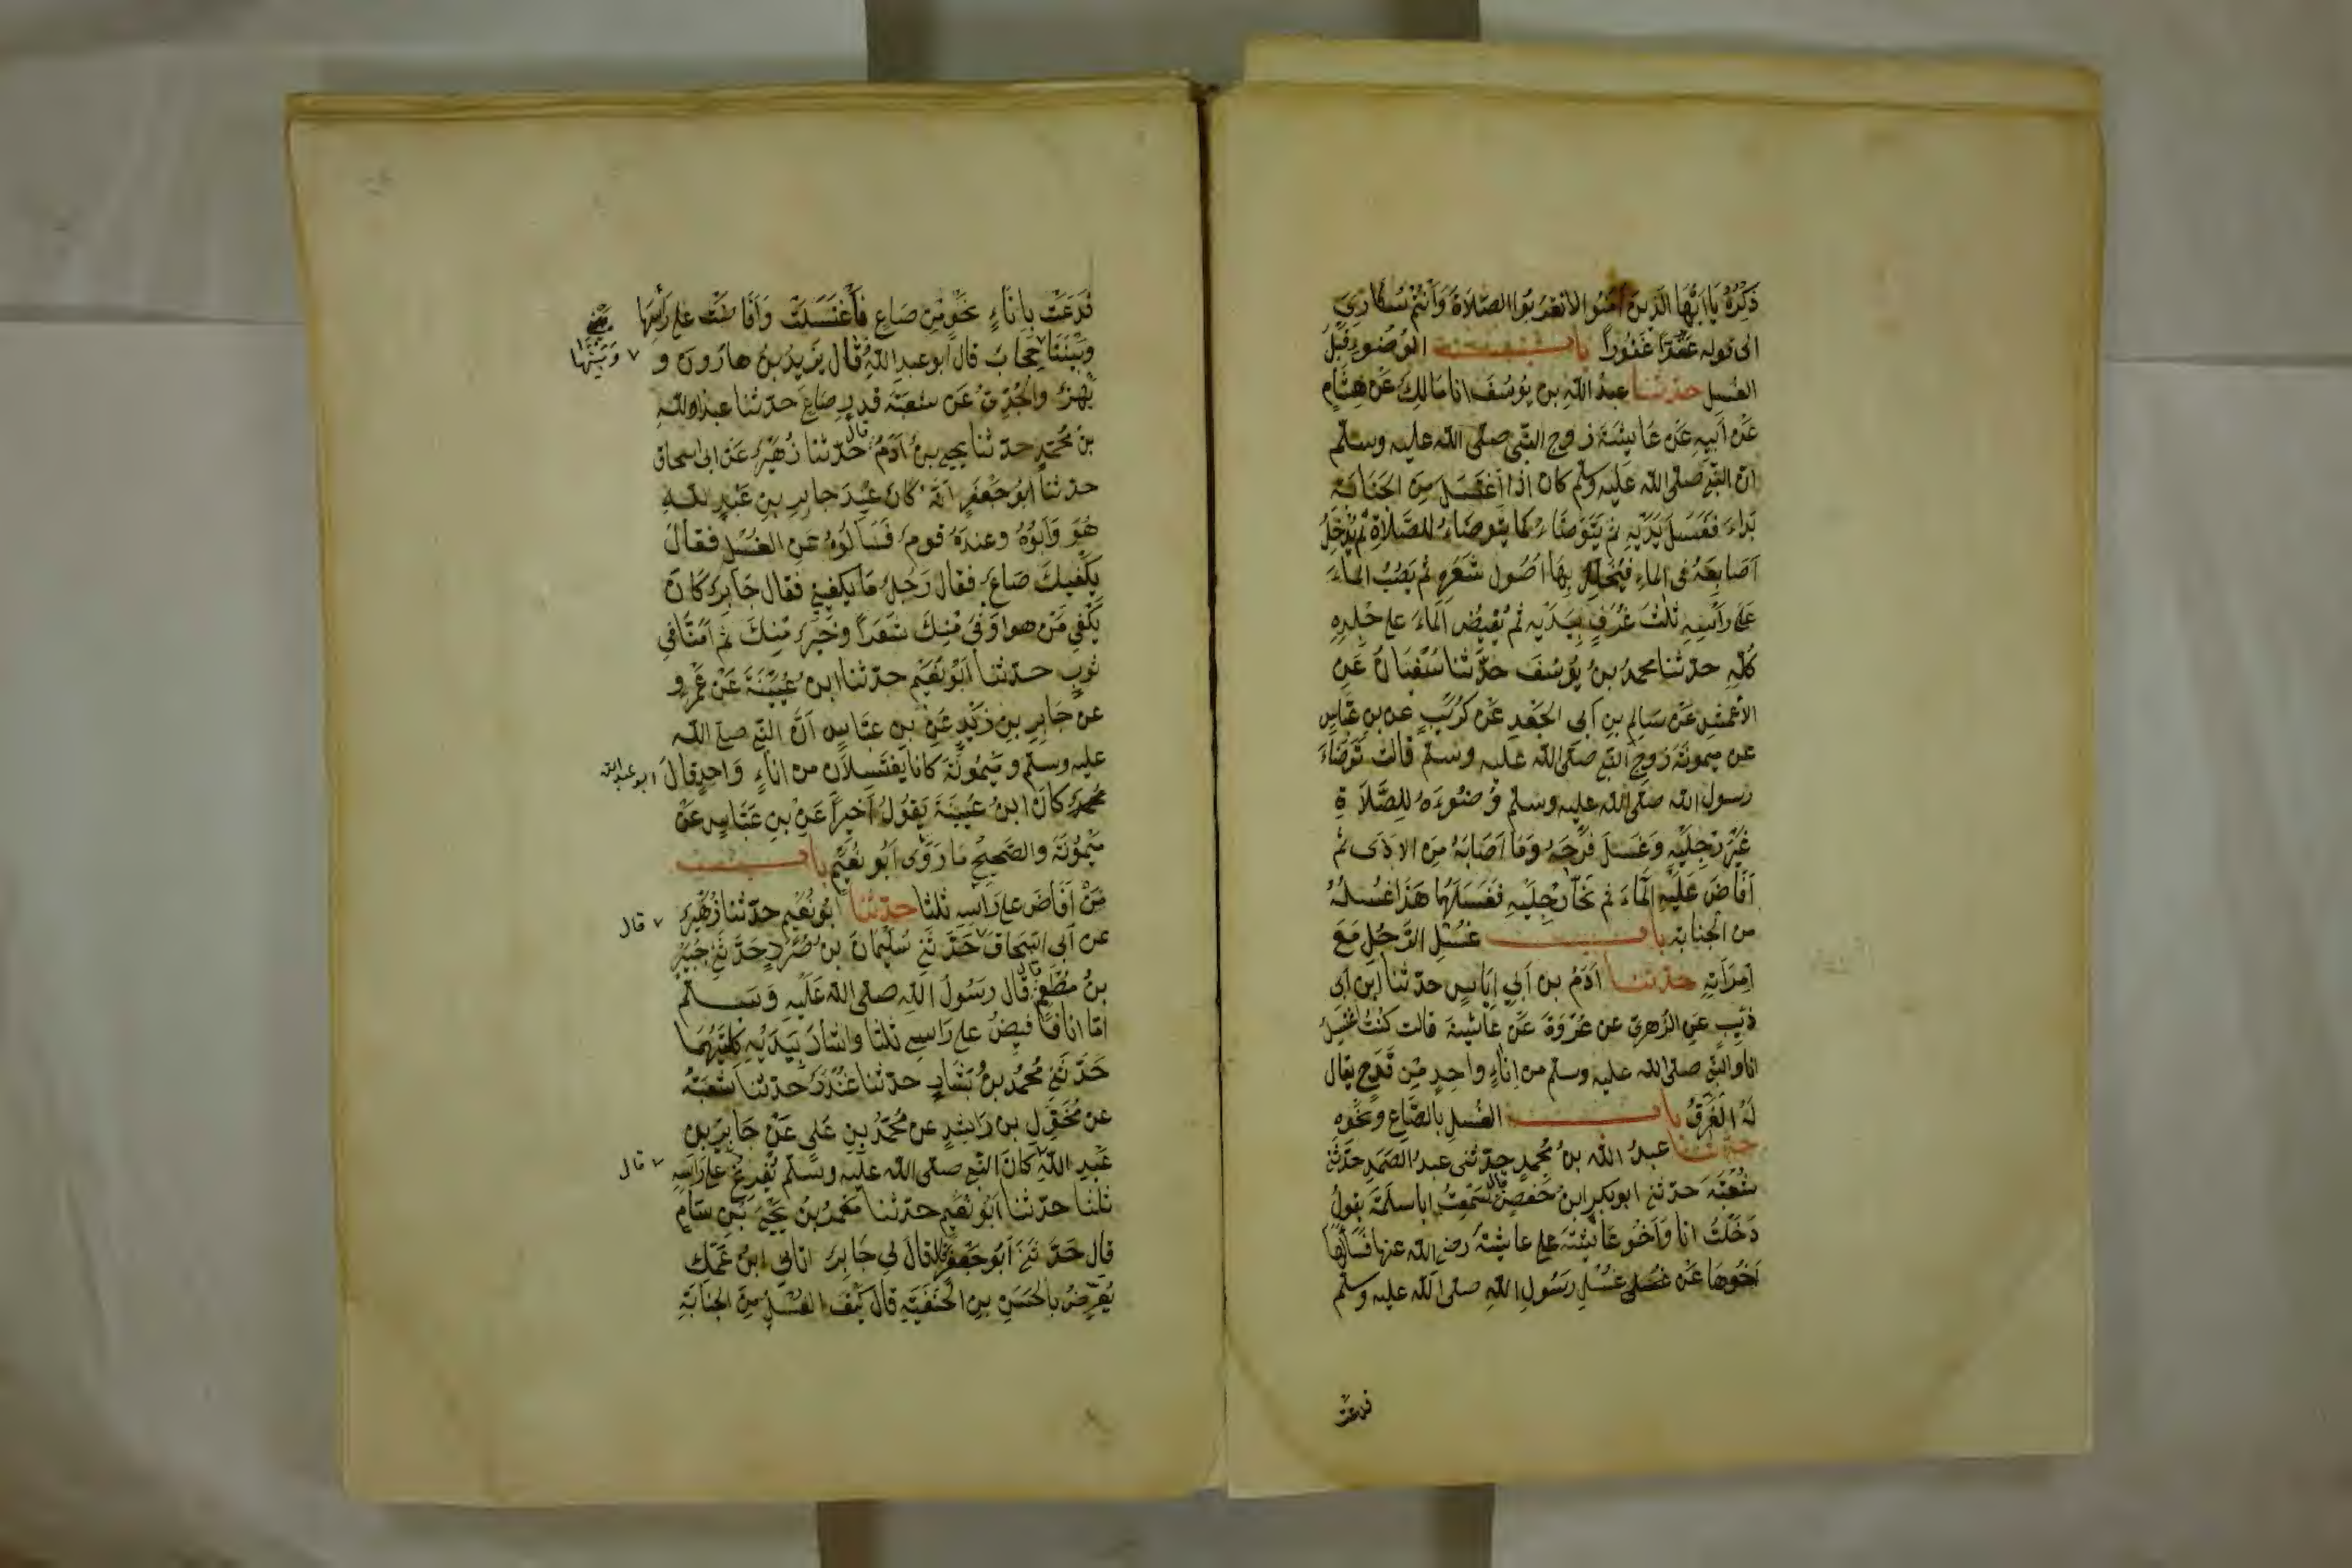 ذكره يا ايها الذين آمنوا لا تقربوا الصلاة وانتم سكارى
الى قوله عفوا غفورا باب الوضوء قبل
الغسل حدثنا عبد الله بن يوسف انا مالك عن هشام
عن ابيه عن عائشة زوج النبي صلى الله عليه وسلم
ان النبي صلى الله عليه وسلم كان اذا اغتسل من الجنابة
بداء فغسل يديه ثم يتوضاء كما يتوضاء للصلاة ثم يدخل
اصابعه فى الماء فيخلل بها اصول شعره ثم يصب الماء
على راسه ثلث غرف بيديه ثم يفيض الماء على جلده
كله حدثنا محمد بن يوسف حدثنا سفيان عن
الاعمش عن سالم بن ابى الجعد عن كريب عن بن عباس
عن ميمونة زوج النبي صلى الله عليه وسلم قالت توضاء
رسول الله صلى الله عليه وسلم وضوءه للصلاة
غير رجليه وغسل فرجه وما اصابه من الاذى ثم
افاض عليه الماء ثم نحا رجليه فغسلهما هذا غسله
من الجنابة باب غسل الرجل مع
امراته حدثنا آدم بن ابي اياس حدثنا ابن ابى
ذئب عن الزهرى عن عروة عن عائشة قالت كنت اغتسل
انا والنبي صلى الله عليه وسلم من اناء واحد من قدح يقال
له الفرق باب الغسل بالصاع ونحوه
حدثنا عبد الله بن محمد حدثنى عبد الصمد حدثني
شعبة حدثني ابو بكر ابن حفص قال سمعت ابا سلمة يقول
دخلت انا واخو عائشة على عائشة رضي الله عنها فسالها
اخوها عن غسل رسول الله صلى الله عليه وسلم
فدعت
فدعت باناء نحو من صاع فاغتسلت وافاضت على راسها
وبيننا حجاب قال ابو عبد الله قال يزيد بن هارون و
وبينها
بهز والجدي عن شعبة قدر صاع حدثنا عبد الله
بن محمد حدثنا يحيى بن آدم قال حدثنا زهير عن ابى اسحاق
حدثنا ابو جعفر انه كان عند جابر بن عبد الله
هو وابوه وعنده قوم فسالوه عن الغسل فقال
يكفيك صاع فقال رجل ما يكفيني فقال جابر كان
يكفي من هو اوفى منك شعرا وخير منك ثم امنا في
ثوب حدثنا ابو نعيم حدثنا ابن عيينة عن عمرو
عن جابر بن زيد عن بن عباس ان النبي صلى الله
عليه وسلم وميمونة كانا يغتسلان من اناء واحد قال ابو عبد الله
محمد كان ابن عيينة يقول اخيرا عن بن عباس عن
ميمونة والصحيح ما روى ابو نعيم باب
من افاض على راسه ثلثا حدثنا ابو نعيم حدثنا زهير
عن ابى اسحاق قال حدثني سليمان بن صرد حدثني جبير
بن مطعم قال قال رسول الله صلى الله عليه وسلم
اما انا فافيض على راسي ثلثا واشار بيديه كلتيهما
حدثني محمد بن بشار حدثنا غندر حدثنا شعبة
عن مخول بن راشد عن محمد بن على عن جابر بن
عبد الله قال كان النبي صلى الله عليه وسلم يفرغ على راسه
ثلثا حدثنا ابو نعيم حدثنا معمر بن يحيى بن سام
قال حدثني ابو جعفر قال قال لي جابر اتانى ابن عمك
يعرض بالحسن بن الحنفية قال كيف الغسل من الجنابة